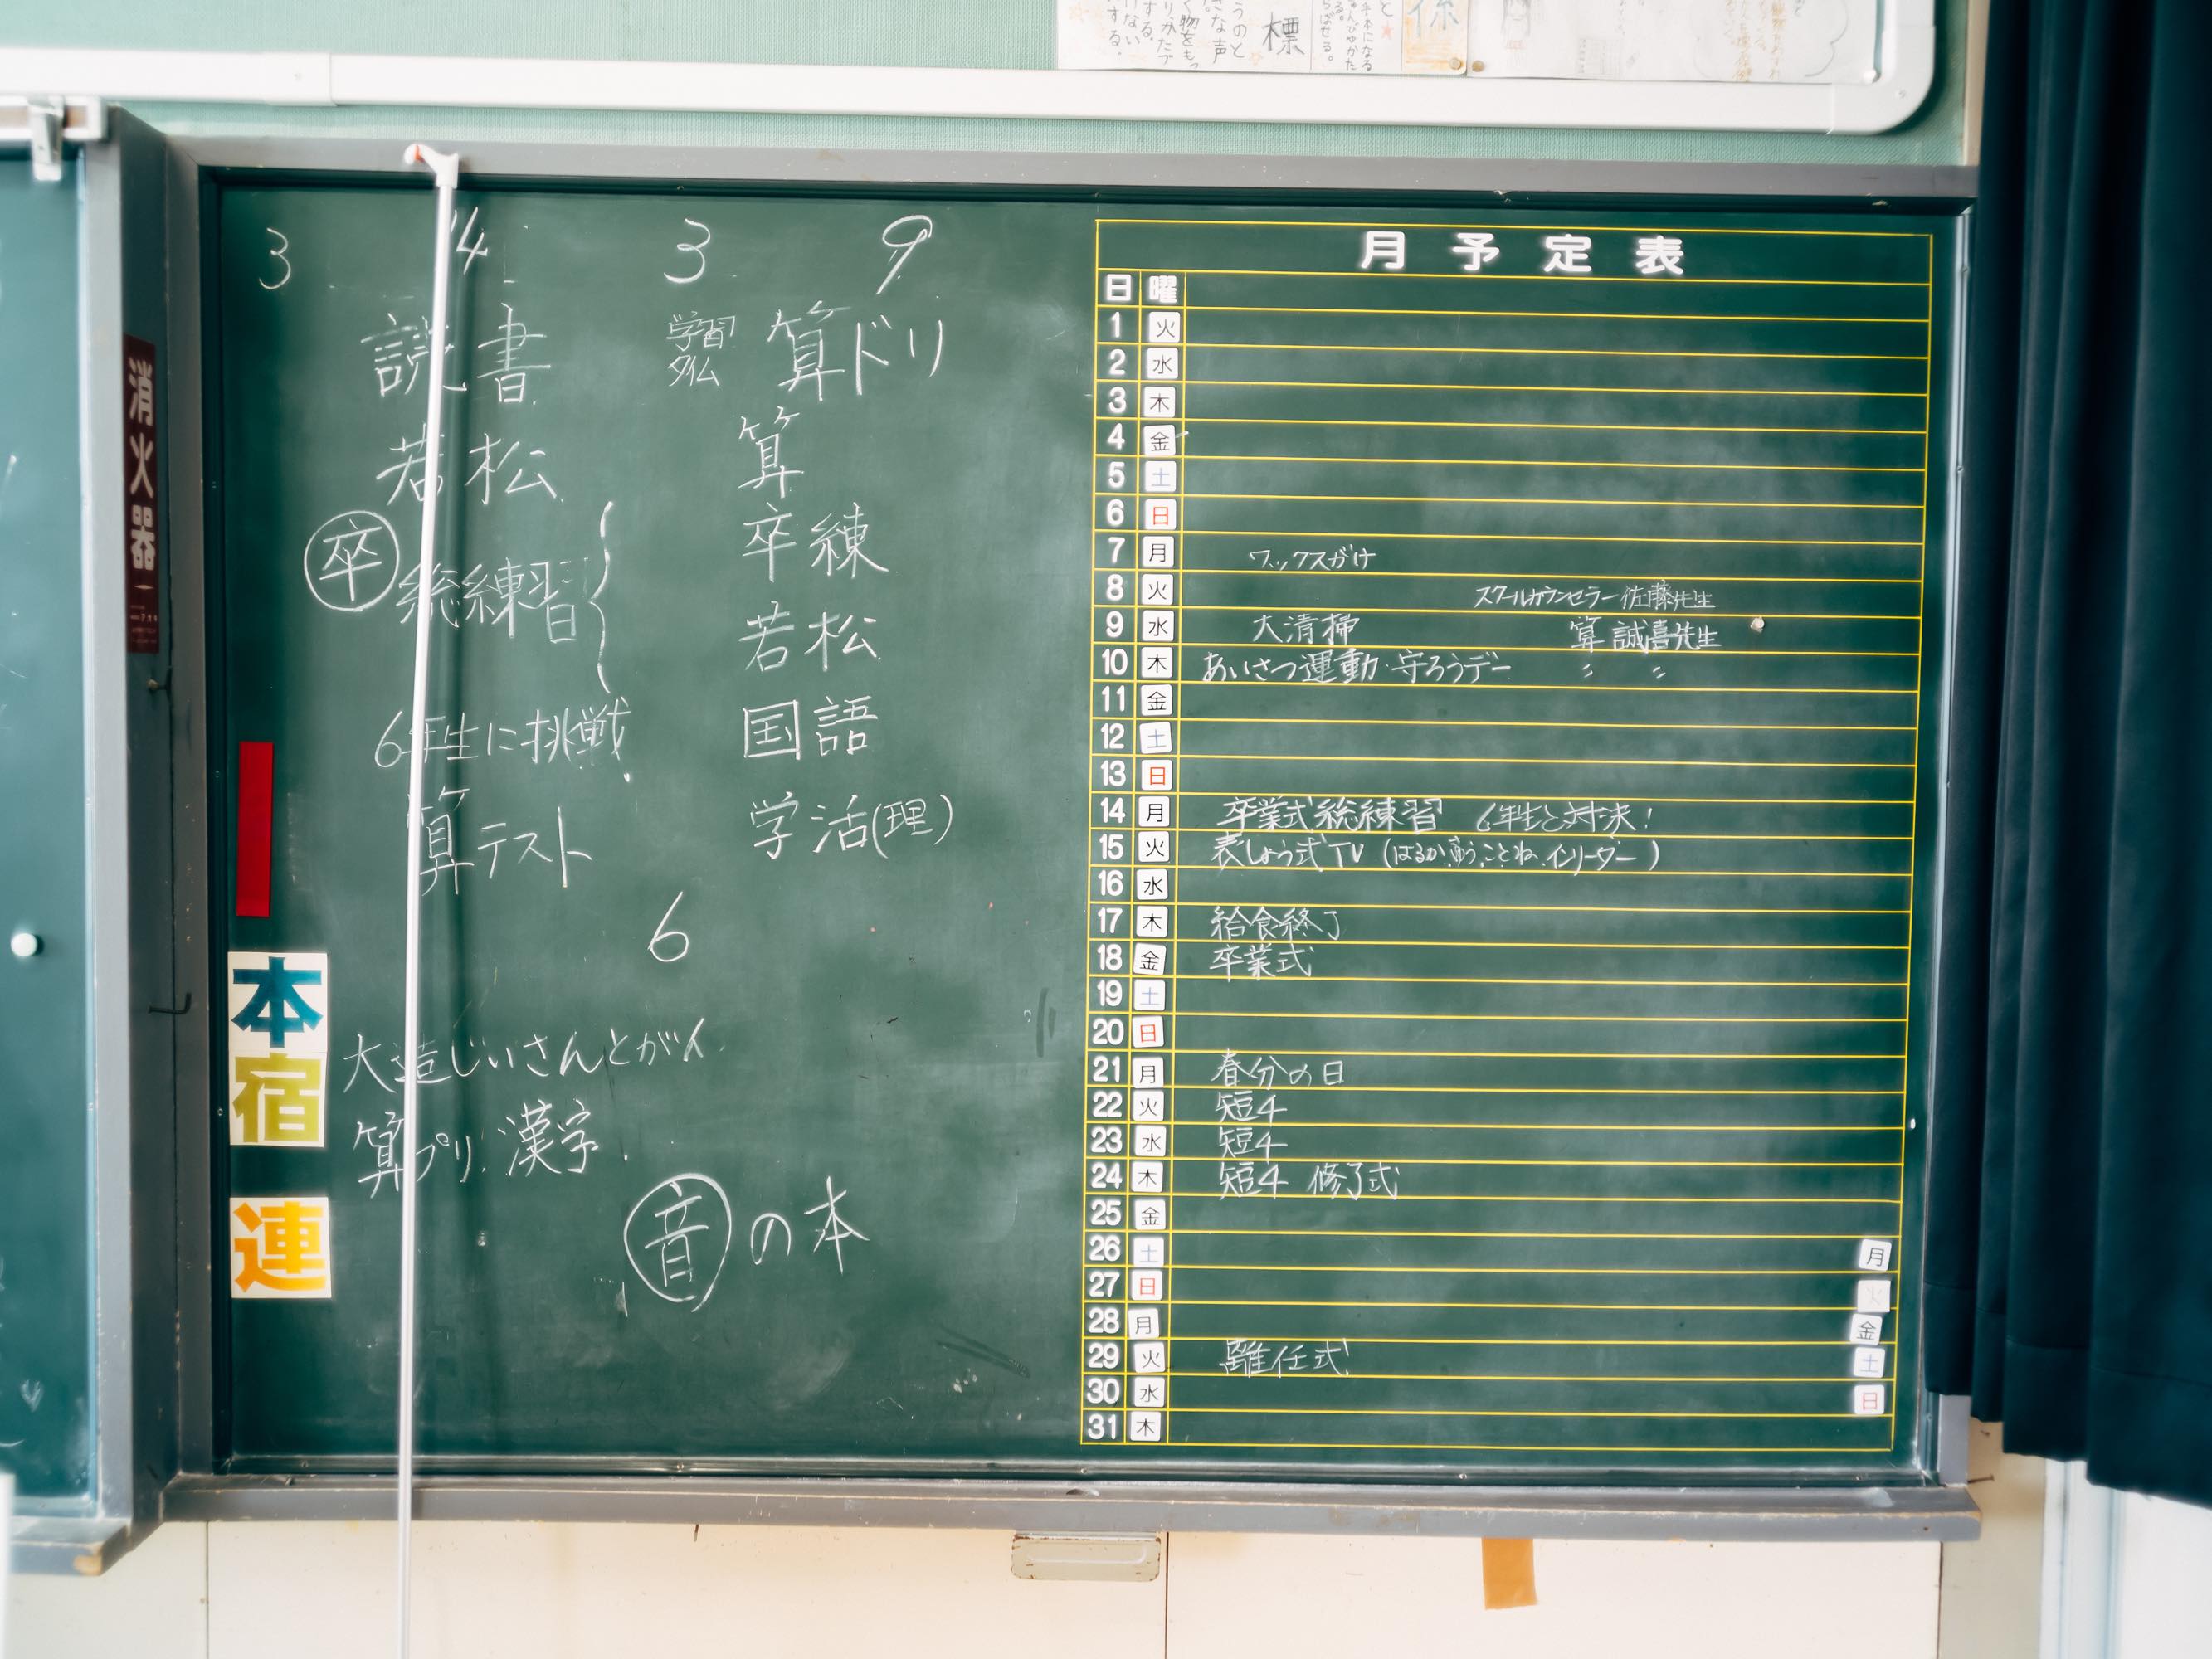 標
係
消火器
3 14
読書
若松
卒 総練習
6年生に挑戦
算テスト
3 9
学習タイム 算ドリ
算
卒練
若松
国語
学活(理)
6
本
宿
連
大造じいさんとガン
算プリ 漢字
音の本
月予定表
日 曜
1 火
2 水
3 木
4 金
5 土
6 日
7 月 ワックスがけ
8 火 スクールカウンセラー佐藤先生
9 水 大清掃 算 誠喜先生
10 木 あいさつ運動・守ろうデー 〃 〃
11 金
12 土
13 日
14 月 卒業式総練習 6年生と対決!
15 火 表しょう式TV
16 水
17 木 給食終了
18 金 卒業式
19 土
20 日
21 月 春分の日
22 火 短4
23 水 短4
24 木 短4 修了式
25 金
26 土 月
27 日 火
28 月 金
29 火 離任式 土
30 水 日
31 木